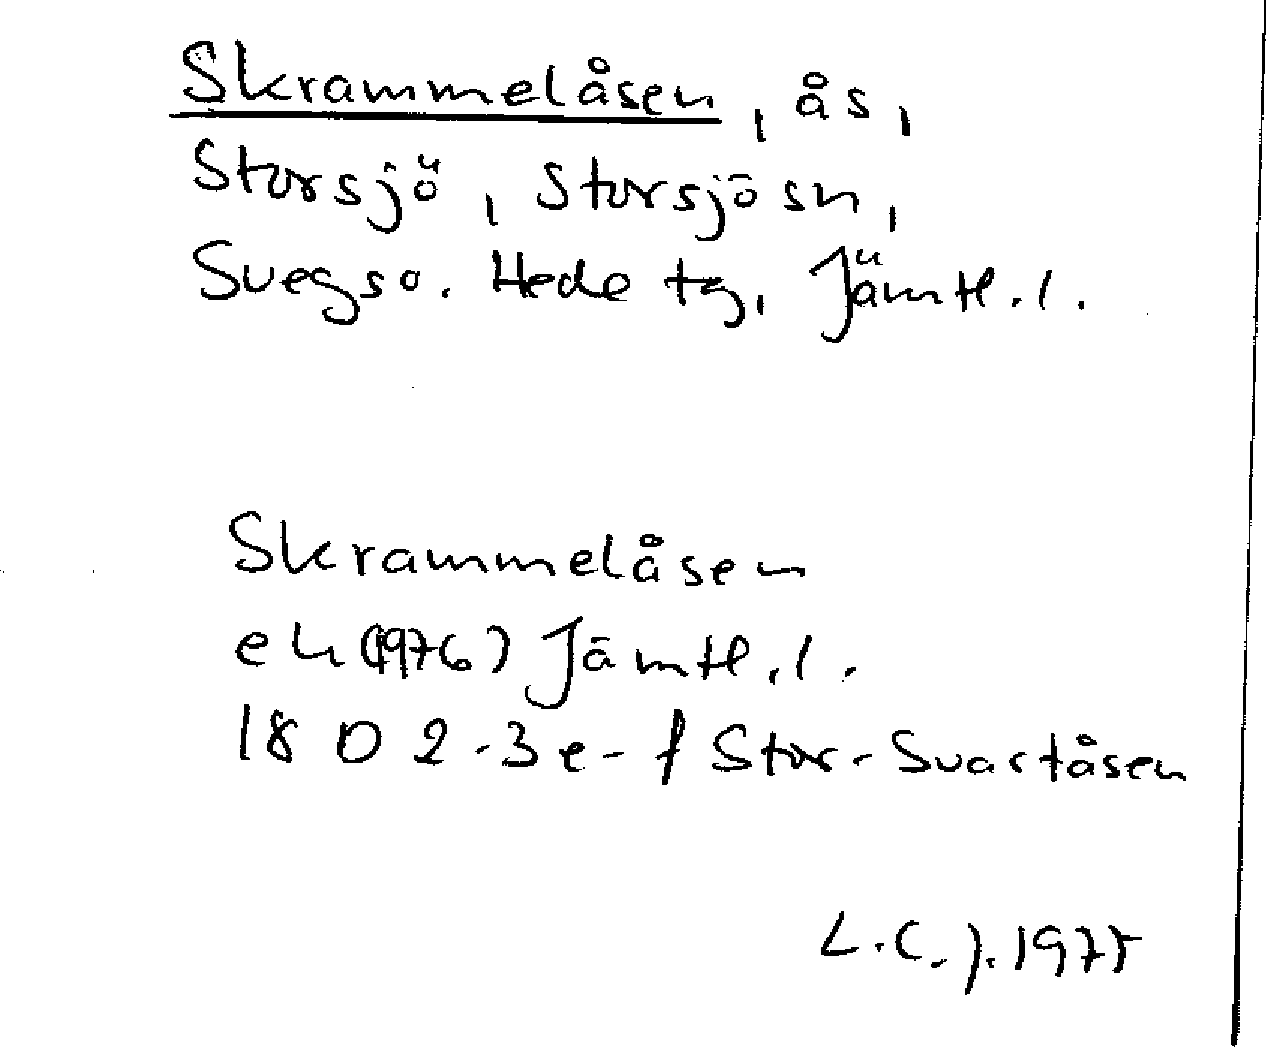 Skrammelåsen, ås,
Storsjö, Storsjö sn,
Svegs o. Hede tg, Jämtl. l.
Skrammelåsen
ek (1976) Jämtl. l.
18 D 2-3 e-f Stor-Svartåsen
L.C.J. 1977